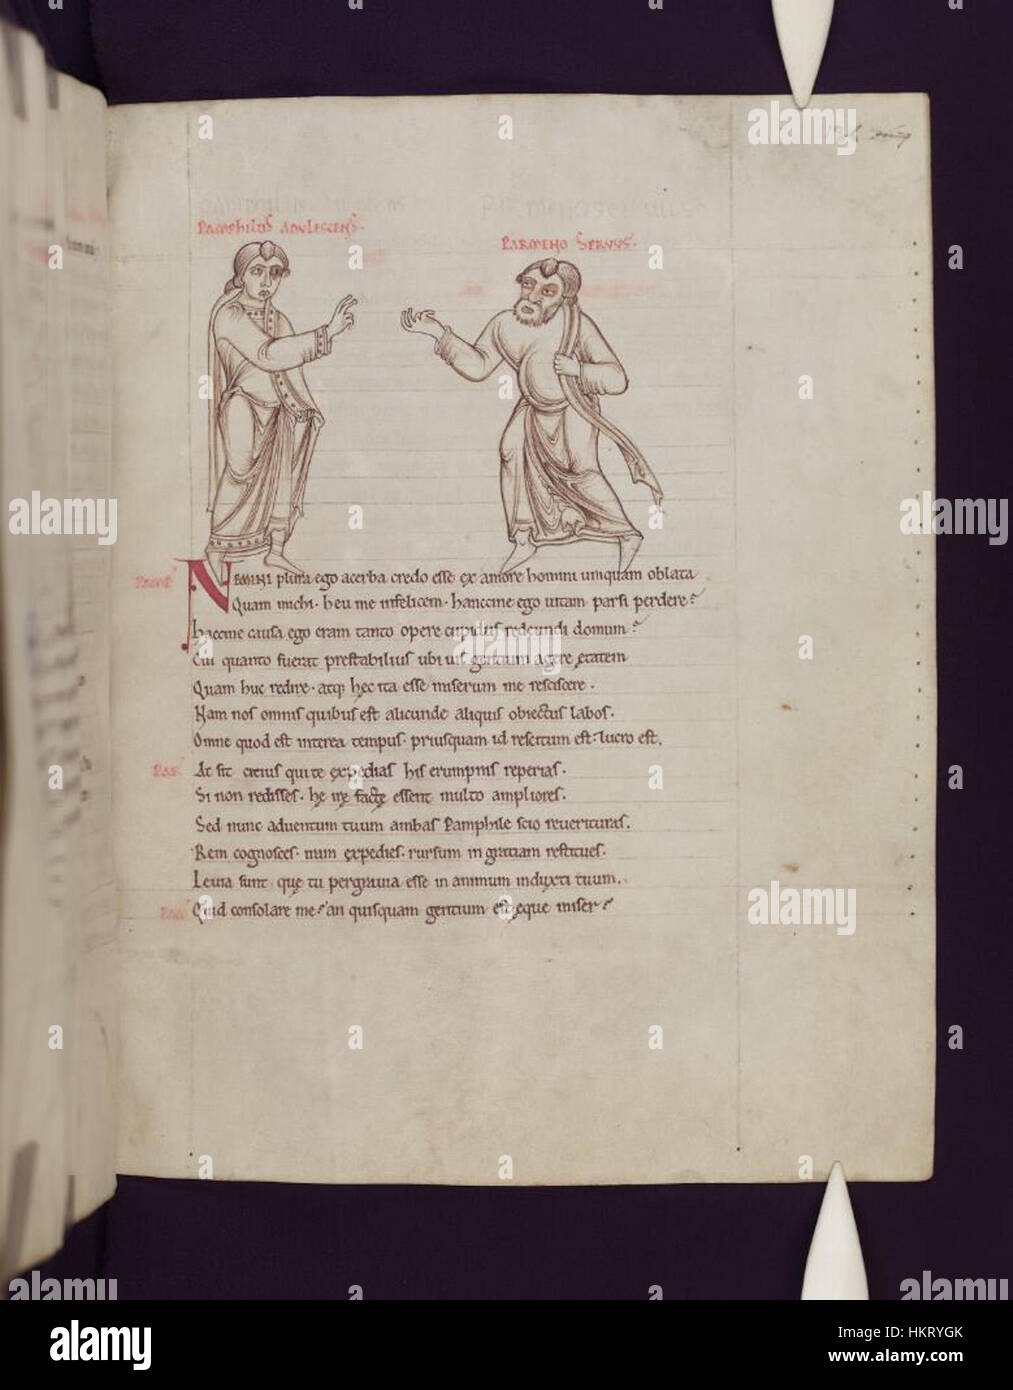 PAMPHILUS ADULESCENS.
PARMENO SERVUS.
NEMINI plura ego acerba credo esse ex amore homini umquam oblata
Quam michi. heu me infelicem. hanccine ego uitam parsi perdere?
haccine causa ego eram tanto opere cupidus redeundi domum?
Cui quanto fuerat prestabilius ubi uis gentium agere ętatem
Quam huc redire. atq; hęc ita esse miserum me resciscere.
Nam nos omnis quibus est alicunde aliquis obiectus labos.
Omne quod est interea tempus. priusquam id rescitum est. lucro est.
PAR At sic citius qui te expedias his erumpnis reperias.
Si non redisses. hę irę factę essent multo ampliores.
Sed nunc aduentum tuum ambas Pamphile scio reuerituras.
Rem cognosces. iram expedies. rursum in gratiam restitues.
Leuia sunt que tu pergrauia esse in animum induxti tuum.
PAM Quid consolare me? an quisquam gentium est ęque miser?
alamy
Image ID: HKRYGK
www.alamy.com